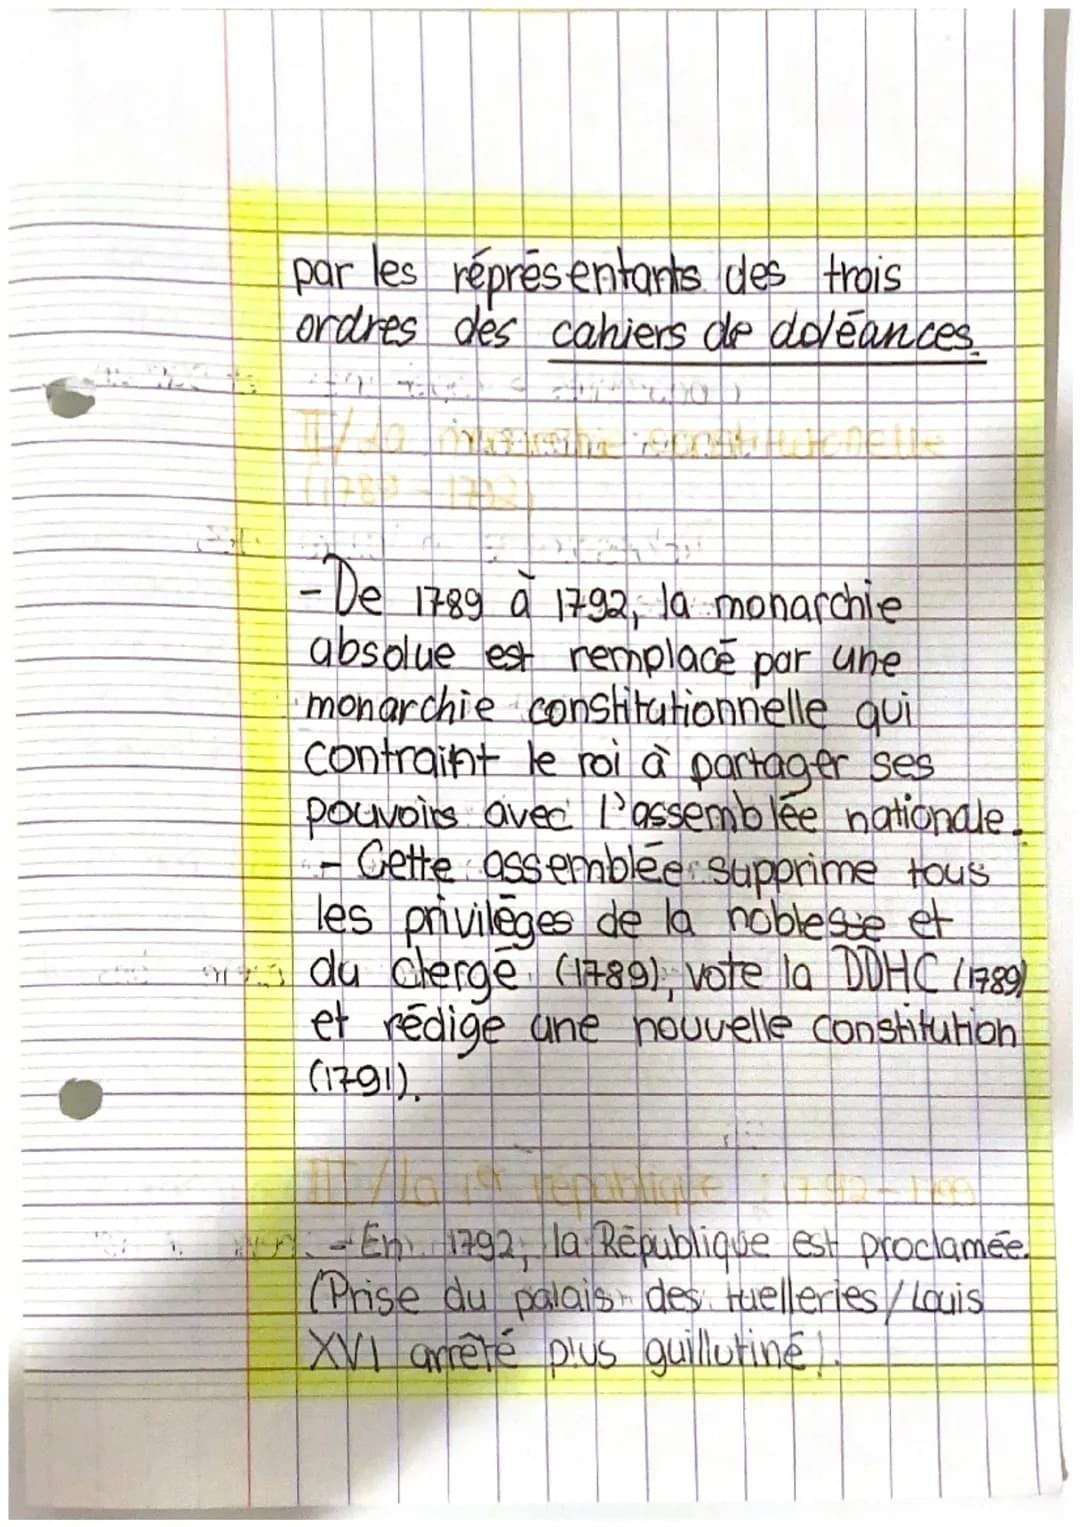 par les réprésentants des trois
ordres des cahiers de doléances.
II/ La monarchie constitutionelle
(1789-1792)
- De 1789 à 1792, la monarchie
absolue est remplacé par une
monarchie constitutionnelle qui
contraint le roi à partager ses
pouvoirs avec l'assemblée nationale.
- Cette assemblée supprime tous
les privilèges de la noblesse et
du clergé (1789), vote la DDHC (1789)
et rédige une nouvelle constitution
(1791).
III/ La 1re république : 1792-
- En 1792, la République est proclamée.
(Prise du palais des tuelleries/Louis
XVI arrêté plus guillutiné).